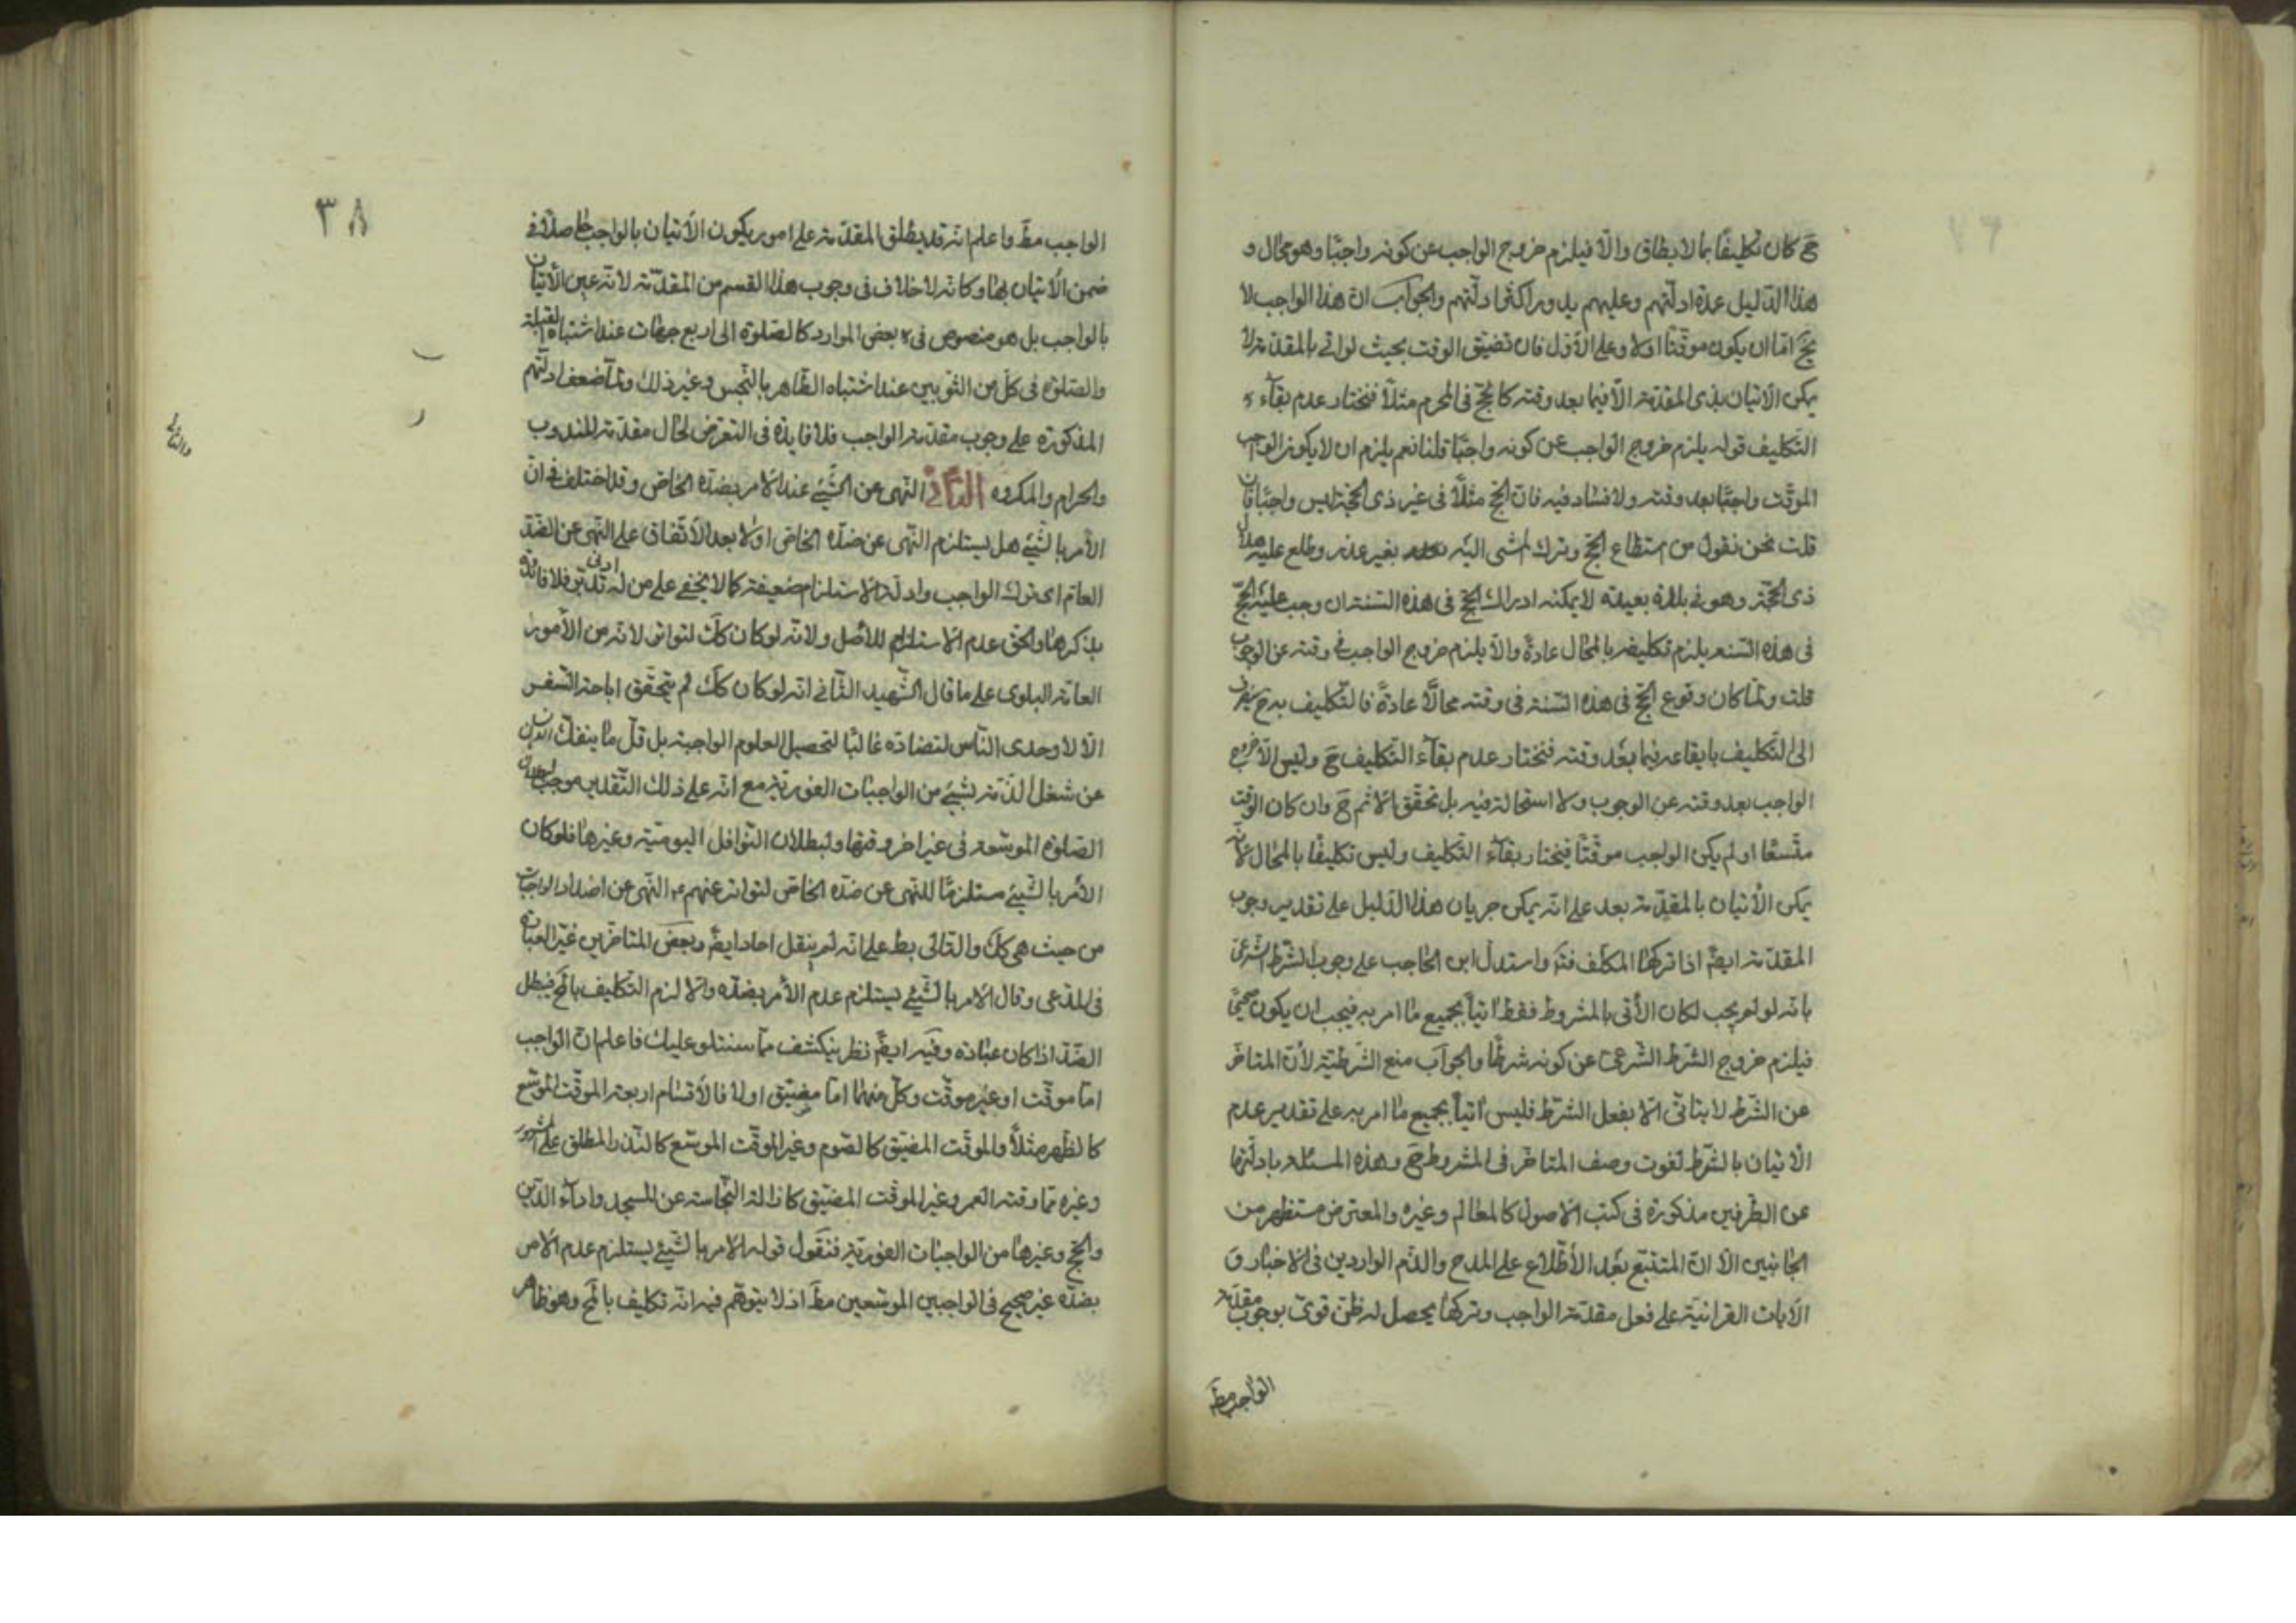 ح كان تكليفا بما لا يطاق والا فيلزم خروج الواجب عن كونه واجبا وهو محال و
هذا الدليل عمدة ادلتهم وعليهم يدور اكثر ادلتهم والجواب ان هذا الواجب لا
يخ اما ان يكون موقتا اولا وعلى الاول فان تضيق الوقت بحيث لو اتى بالمقدمة لا
يمكن الاتيان بذى المقدمة الا فيما بعد وقته كالحج فى المحرم مثلا فنختار عدم بقاء
التكليف قوله يلزم خروج الواجب عن كونه واجبا قلنا نعم يلزم ان لا يكون الواجب
الموقت واجبا بعد وقته ولا فساد فيه فان الحج مثلا فى غير ذى الحجة ليس واجبا فان
قلت نحن نقول من استطاع الحج وترك المشى اليه بغير عذر وطلع عليه هلال
ذى الحجة وهو فى بلدة بعيدة لا يمكنه ادراك الحج فى هذه السنة ان وجب عليه الحج
فى هذه السنة يلزم تكليفه بالمحال عادة والا يلزم خروج الواجب فى وقته عن الوجوب
قلت ولما كان وقوع الحج فى هذه السنة فى وقته محالا عادة فالتكليف به ح ينصرف
الى التكليف بايقاعه فيما بعد وقته فنختار عدم بقاء التكليف ح وليس الا خروج
الواجب بعد وقته عن الوجوب ولا استحالة فيه بل تحقق الاثم ح وان كان الوقت
متسعا او لم يكن الواجب موقتا فيختار بقاء التكليف وليس تكليفا بالمحال لانه
يمكن الاتيان بالمقدمة بعد على انه يمكن جريان هذا الدليل على تقدير وجوب
المقدمة ايضا اذا تركها المكلف فتد واستدل ابن الحاجب على وجوب الشرط الشرعى
بانه لو لم يجب لكان الآتى بالمشروط فقط آتيا بجميع ما امر به فيجب ان يكون صحيحا
فيلزم خروج الشرط الشرعى عن كونه شرطا والجواب منع الشرطية لان المتاخر
عن الشرط لا يتاتى الا بفعل الشرط فليس آتيا بجميع ما امر به على تقدير عدم
الاتيان بالشرط لفوت وصف المتاخر فى المشروط ح وهذه المسئلة بادلتها
عن الطرفين مذكورة فى كتب الاصول كالمعالم وغيره والمعترض مستظهر من
الجانبين الا ان المتتبع بعد الاطلاع على المدح والذم الواردين فى الاخبار و
الآيات القرانية على فعل مقدمة الواجب وتركها يحصل له ظن قوى بوجوب مقدمة
الواجب مط
٣٨
الواجب مط واعلم انه قد يطلق المقدمة على امور يكون الاتيان بالواجب حاصلا فى
ضمن الاتيان بها وكانه لا خلاف فى وجوب هذا القسم من المقدمة لانه عين الاتيان
بالواجب بل هو منصوص فى بعض الموارد كالصلوة الى اربع جهات عند اشتباه القبلة
والصلوة فى كل من الثوبين عند اشتباه الطاهر بالنجس وغير ذلك ولما ضعف ادلتهم
المذكورة على وجوب مقدمة الواجب فلا فايدة فى التعرض لحال مقدمة المندوب
والحرام والمكروه الثانى النهى عن الشىء عند الامر بضده الخاص وقد اختلف فى ان
الامر بالشىء هل يستلزم النهى عن ضده الخاص اولا بعد الاتفاق على النهى عن الضد
العام اى ترك الواجب وادلة الاستلزام ضعيفة كما لا يخفى على من له ادنى تدبر فلا فائدة
بذكرها والحق عدم الاستلزام للاصل ولانه لو كان كك لتواتر لانه من الامور
العامة البلوى على ما قال الشهيد الثانى انه لو كان كك لم يتحقق اباحة السفر
الا لاوحدى الناس لتضاده غالبا لتحصيل العلوم الواجبة بل قل ما ينفك انسان
عن شغل الذمة بشىء من الواجبات الفورية مع انه على ذلك التقدير موجب لبطلان
الصلوة الموسعة فى غير اخر وقتها ولبطلان النوافل اليومية وغيرها فلو كان
الامر بالشىء مستلزما للنهى عن ضده الخاص لتواتر عنهم النهى عن اضداد الواجبات
من حيث هى كك والتالى بط على انه لم ينقل احاد ايضا وبعض المتاخرين غير العبارة
فى المدعى وقال الامر بالشىء يستلزم عدم الامر بضده والا لزم التكليف بالمح فيبطل
الضد اذا كان عبادة وفيه ايضا نظر ينكشف مما سنتلو عليك فاعلم ان الواجب
اما موقت او غير موقت وكل منهما اما مضيق اولا فالاقسام اربعة الموقت الموسع
كالظهر مثلا والموقت المضيق كالصوم وغير الموقت الموسع كالنذر المطلق على المشهور
وغيره مما وقته العمر وغير الموقت المضيق كازالة النجاسة عن المسجد واداء الدين
والحج وغيرها من الواجبات الفورية فنقول قوله الامر بالشىء يستلزم عدم الامر
بضده غير صحيح فى الواجبين الموسعين مط اذ لا يتوهم فيه انه تكليف بالمح وهو ظاهر